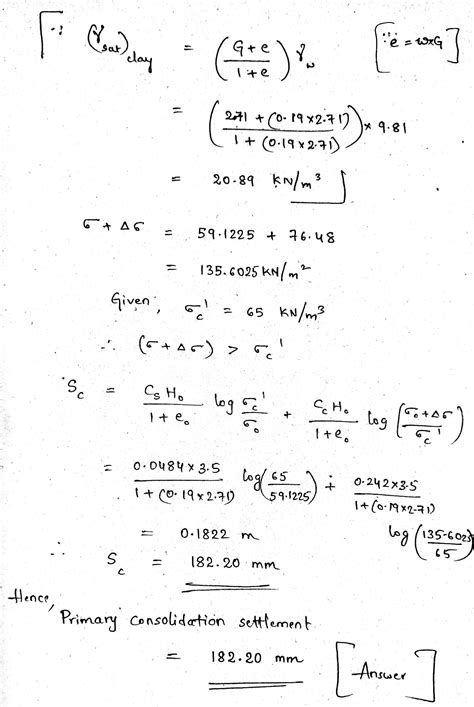 ∵ (γsat)clay = ((G+e)/(1+e)) γw [∵ e = w×G]
= ((2.71 + (0.19×2.71))/(1 + (0.19×2.71))) × 9.81
= 20.89 KN/m³
σ + Δσ = 59.1225 + 76.48
= 135.6025 KN/m²
Given, σc' = 65 KN/m³
∴ (σ+Δσ) > σc'
Sc = (Cs H₀)/(1+e₀) log σc'/σ₀ + (Cc H₀)/(1+e₀) log (σ₀+Δσ/σc')
= (0.0484×3.5)/(1+(0.19×2.71)) log(65/59.1225) + (0.242×3.5)/(1+(0.19×2.71)) log(135.6025/65)
= 0.1822 m
∴ Sc = 182.20 mm
Hence,
Primary consolidation settlement
= 182.20 mm [Answer]